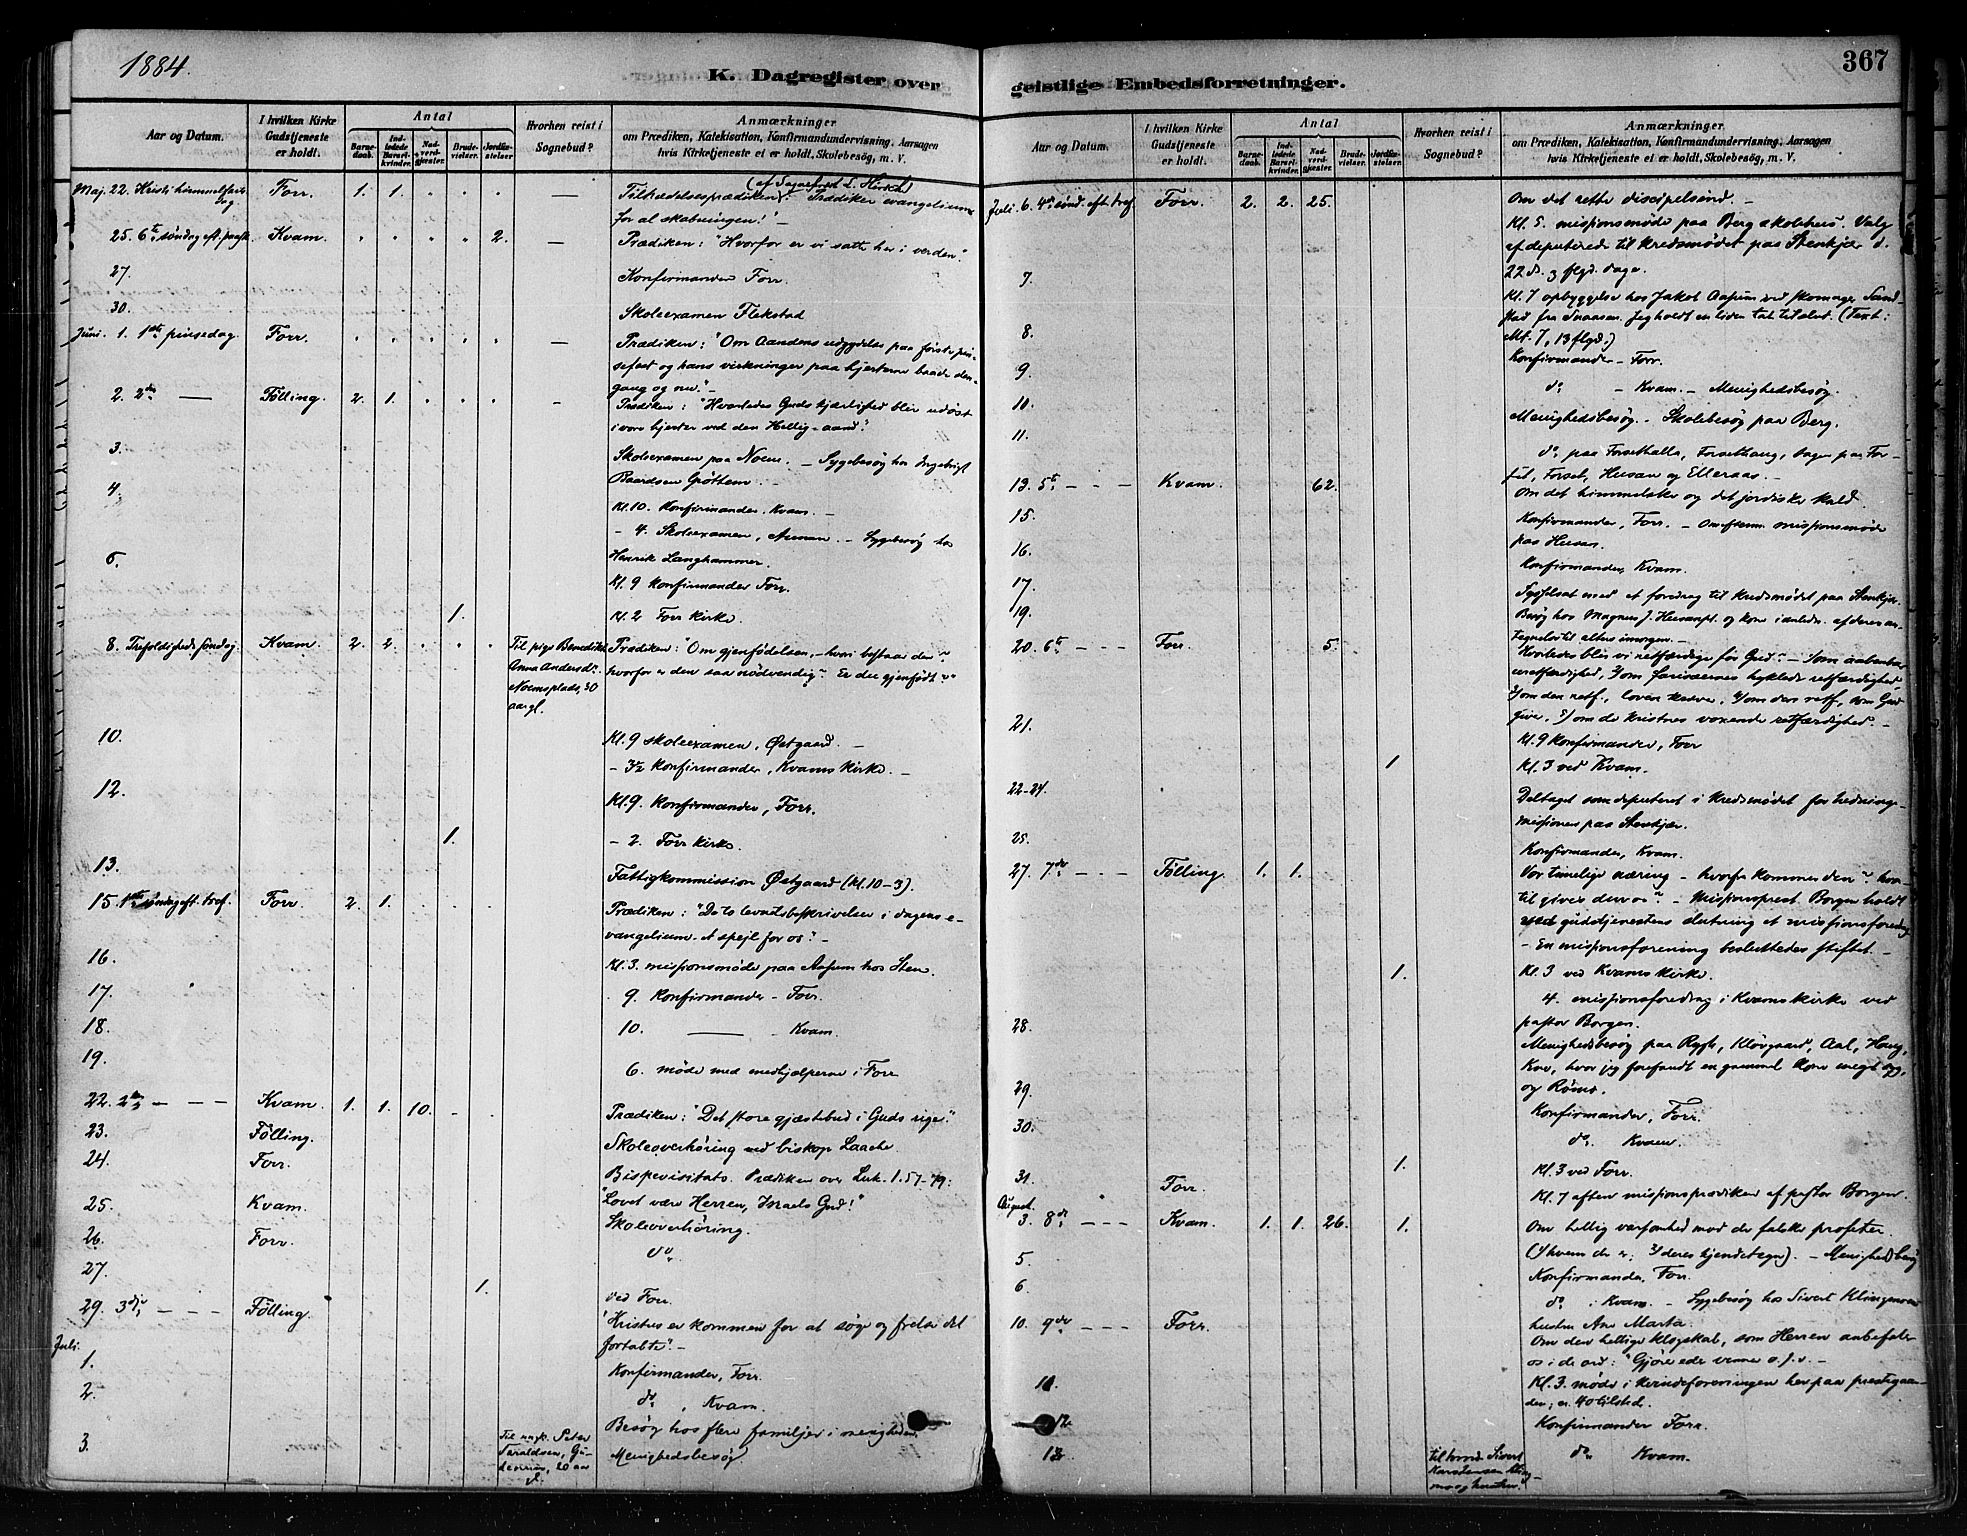 1884.
K. Dagregister over
Aar og Datum.
I hvilken Kirke Gudstjeneste er holdt.
Antal
Barne-daab.
Ind-ledede Barsel-kvinder.
Nad-verd-gjester.
Brude-vielser.
Jordfæ-stelser.
Hvorhen reist i Sognebud?
Anmærkninger
om Prædiken, Katekisation, Konfirmandundervisning, Aarsagen
hvis Kirketjeneste ei er holdt, Skolebesøg, m. V.
Maj. 22. Kristi himmelfarts dag. Forr. 1. 1. Tilthædelsesprædiken (af Sogneprest L. Hirsch): "Prædiker evangelium
for al skabningen!" –
25. 6te søndag eft. paask. Kvam. 2. – Prædiken: "Hvorfor er vi satte her i verden".
27. Konfirmander Forr.
30. Skoleexamen Flekstad
Juni. 1. 1ste pinsedag. Forr. – Prædiken: "Om Aandens udgydelse paa første pin-
sefest og hans virkninger paa hjerterne baade den-
gang og nu." –
2. 2den — Følling. 2. 1. – Prædiken: "Hvorledes Guds kjærlighed blir udøst
i vore hjerter ved den Hellig-aand".
3. Skoleexamen paa Noem. – Sygebesøg hos Ingebrigt
Baardsen Grøttem. –
4. Kl. 10. Konfirmander. Kvam. –
– 4. Skoleexamen, – Sygebesøg hos
Henrik Langhammer.
6. Kl. 9 Konfirmander Forr.
1. Kl. 2 Forr kirke.
8. Trefoldigheds søndag. Kvam. 2. 2. Til pige Benedikte Anna Andersdr. Noemsplads, 30 aar gl. Prædiken: "Om gjenfødelsen, – hvori bestaar den?
hvorfor er den saa nødvendig? Er du gjenfødt?"
10. Kl. 9 skoleexamen, Østgaard. –
– 3½ Konfirmander, Kvams kirke. –
12. Kl. 9. Konfirmander, Forr.
1. – 2. Forr kirke.
13. Fattigkommission Østgaard (Kl. 10–3).
15. 1ste søndag eft. tref. Forr. 2. 1. Prædiken: "De to levnetsbeskrivelser i dagens e-
vangelium – et spejl for os". –
16. Kl. 3. missionsmøde paa Aasum hos Sten.
17. 9. Konfirmander – Forr.
18. 10. — Kvam.
19. 6. møde med medhjælperne i Forr
22. 2den – – – Kvam. 1. 1. 10. Prædiken: "Det store gjæstebud i Guds rige".
23. Følling. Skoleoverhøring ved biskop Laache.
24. Forr. Bispevisitats. Prædiken over Luk. 1. 57–79:
"Lovet være Herren, Israels Gud!"
25. Kvam. Skoleoverhøring.
26. Forr. do.
27. 1. ved Forr.
29. 3die – – – Følling. "Kristus er kommen for at søge og frelse det
fortabte". –
Juli. 1. Konfirmander, Forr.
2. do. , Kvam.
Besøg hos flere familjer i menigheden.
3. Til ungk. Peter Taraldsen, 20 aar gl. Menighedsbesøg
367
geistlige Embedsforretninger.
Aar og Datum.
I hvilken Kirke Gudstjeneste er holdt.
Antal
Barne-daab.
Ind-ledede Barsel-kvinder.
Nad-verd-gjester.
Brude-vielser.
Jordfæ-stelser.
Hvorhen reist i Sognebud?
Anmærkninger
om Prædiken, Katekisation, Konfirmandundervisning, Aarsagen
hvis Kirketjeneste ei er holdt, Skolebesøg, m. V.
Juli. 6. 4de sønd. eft. tref. Forr. 2. 2. 25. Om det rette discipelsind. –
Kl. 5. missionsmøde paa Berg skolehus. Valg
af deputerede til kredsmødet paa Stenkjær d.
22de og flgd. dage.
7. Kl. 7 opbyggelse hos Jakob Aasum ved skomager Sand-
stad fra Snaasen. Jeg holdt en liden tale tilslut. (Text:
Mt. 7, 13 flgd.)
8. Konfirmander – Forr.
9. do. – Kvam. – Menighedsbesøg.
10. Menighedsbesøg. – Skolebesøg paa Berg.
11. do. paa Forsethalla, Forsethaug,
Forset, Husan og Elleraas. –
13. 5te – – – Kvam. 62. Om det himmelske og det jordiske kald.
15. Konfirmander, Forr. – Om eftm. missionsmøde
paa Husan.
16. Konfirmander, Kvam.
17. Sysselsat med et foredrag til kredsmødet paa Stenkjær.
19. Besøg hos Magnus J. Husanpl. og kone i anledn. af deres an-
tegnelse til alters imorgen. –
20. 6te – – – Forr. 5. Hvorledes blir vi retfærdige for Gud? – 1) om aabenbar
uretfærdighed, 2) om farisæernes hyklede retfærdighed,
3) om den retf., loven kræver, 4) om den retf., som Gud
giver, 5) om de kristnes voxende retfærdighed. –
21. Kl. 9 Konfirmander, Forr
1 Kl. 3 ved Kvam.
22–24. Deltaget som deputeret i kredsmødet for hedninge-
missionen paa Stenkjær.
25. Konfirmander, Kvam.
27. 7de – – – Følling. 1. 1. Vor timelige næring – hvorfra kommer den? hvor-
til gives den os? – Missionsprest Borgen holdt
ved gudstjenestens slutning et missionsforedrag
– En missionsforening besluttedes stiftet. –
1. Kl. 3 ved Kvams kirke.
4. missionsforedrag i Kvams kirke ved
pastor Borgen.
28. Menighedsbesøg paa Rygh, Kløvgaard, Aal, Haug,
hvor jeg forefandt en gammel kone meget syg,
og Røms.
29. Konfirmander, Forr.
30. do. Kvam.
1. Kl. 3 ved Forr.
31. Forr. Kl. 7 aften missionsprædiken af pastor Borgen.
August. 3. 8de – – – Kvam. 1. 1. 26. 1. Om hellig varsomhed mod de falske profeter
(1) hvem de er; 2) deres kjendetegn). – Menighedsbesøg
5. Konfirmander, Forr.
6. do. i Kvam. – Sygebesøg hos Sivert Klingens
hustru Ane Marta.
10. 9de – – – Forr. Om den hellige klogskab, som Herren anbefaler
os i de ord: "Gjører eder venner o.s.v. –
11. Kl. 3. møde i kvindeforeningen her paa prestegaar-
den; ca. 40 tilsted.
12. Konfirmander Forr.
13. til Sivert Karstensen og hustru. do. Kvam.